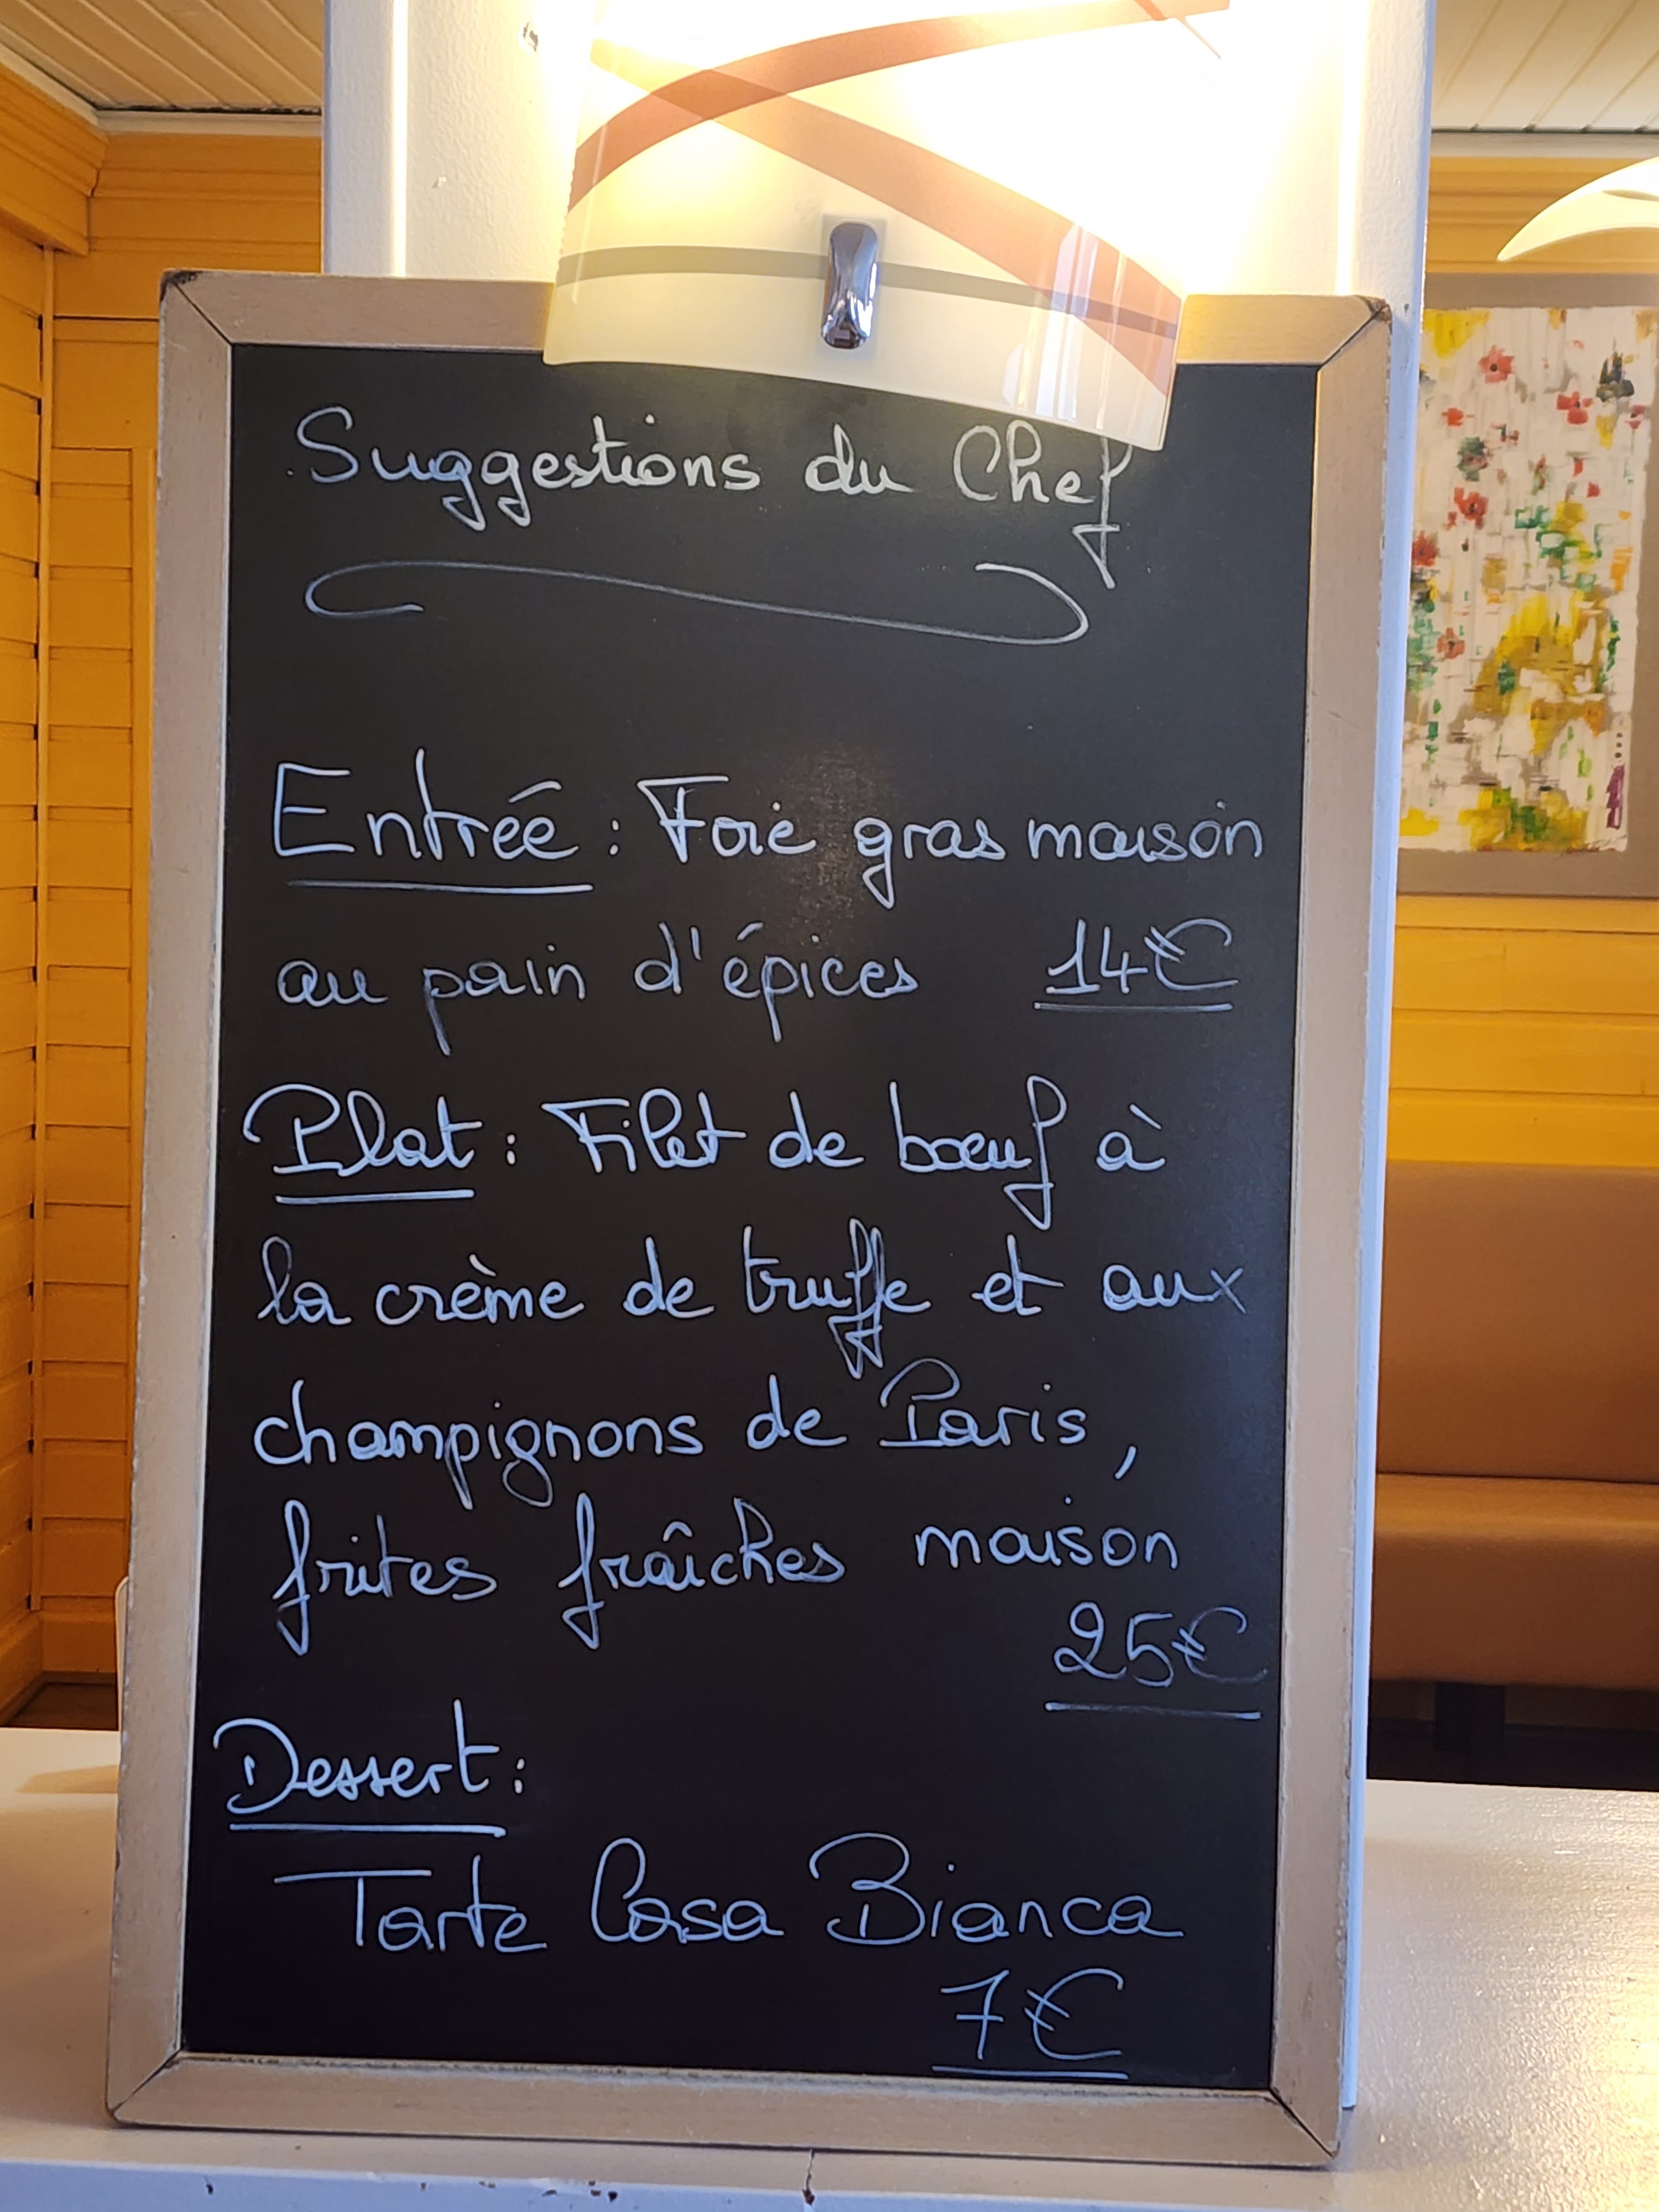 Suggestions du Chef
Entrée : Foie gras maison
au pain d'épices 14€
Plat : Filet de bœuf à
la crème de truffe et aux
champignons de Paris,
frites fraîches maison
25€
Dessert :
Tarte Casa Bianca
7€